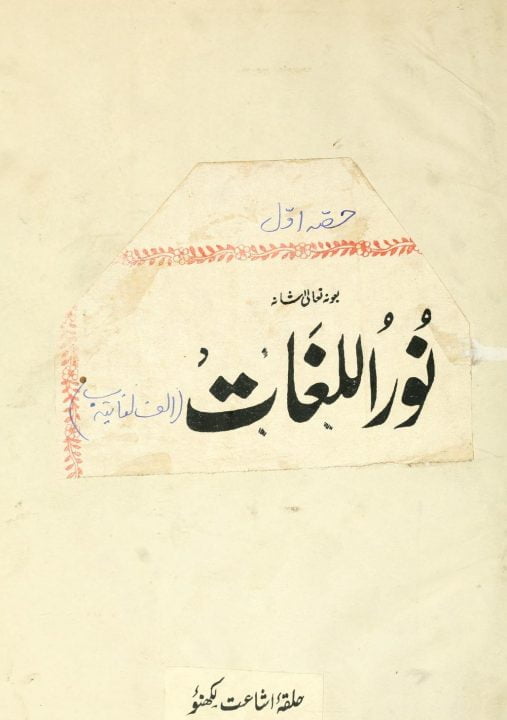 حصّہ اوّل
بعونہ تعالیٰ شانہ
نُورُ اللغَات
(الف لغایتہ ب)
حلقۂ اشاعت لکھنؤ